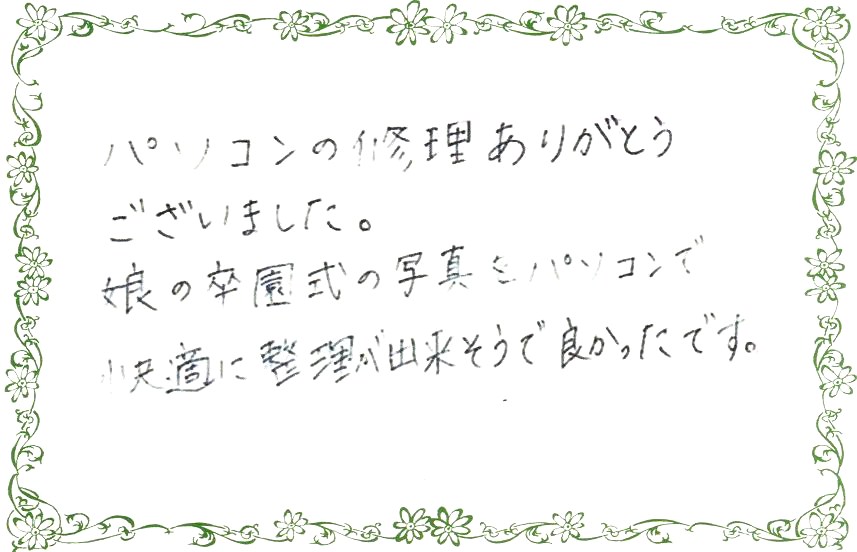 パソコンの修理ありがとう
ございました。
娘の卒園式の写真をパソコンで
快適に整理が出来そうで良かったです。